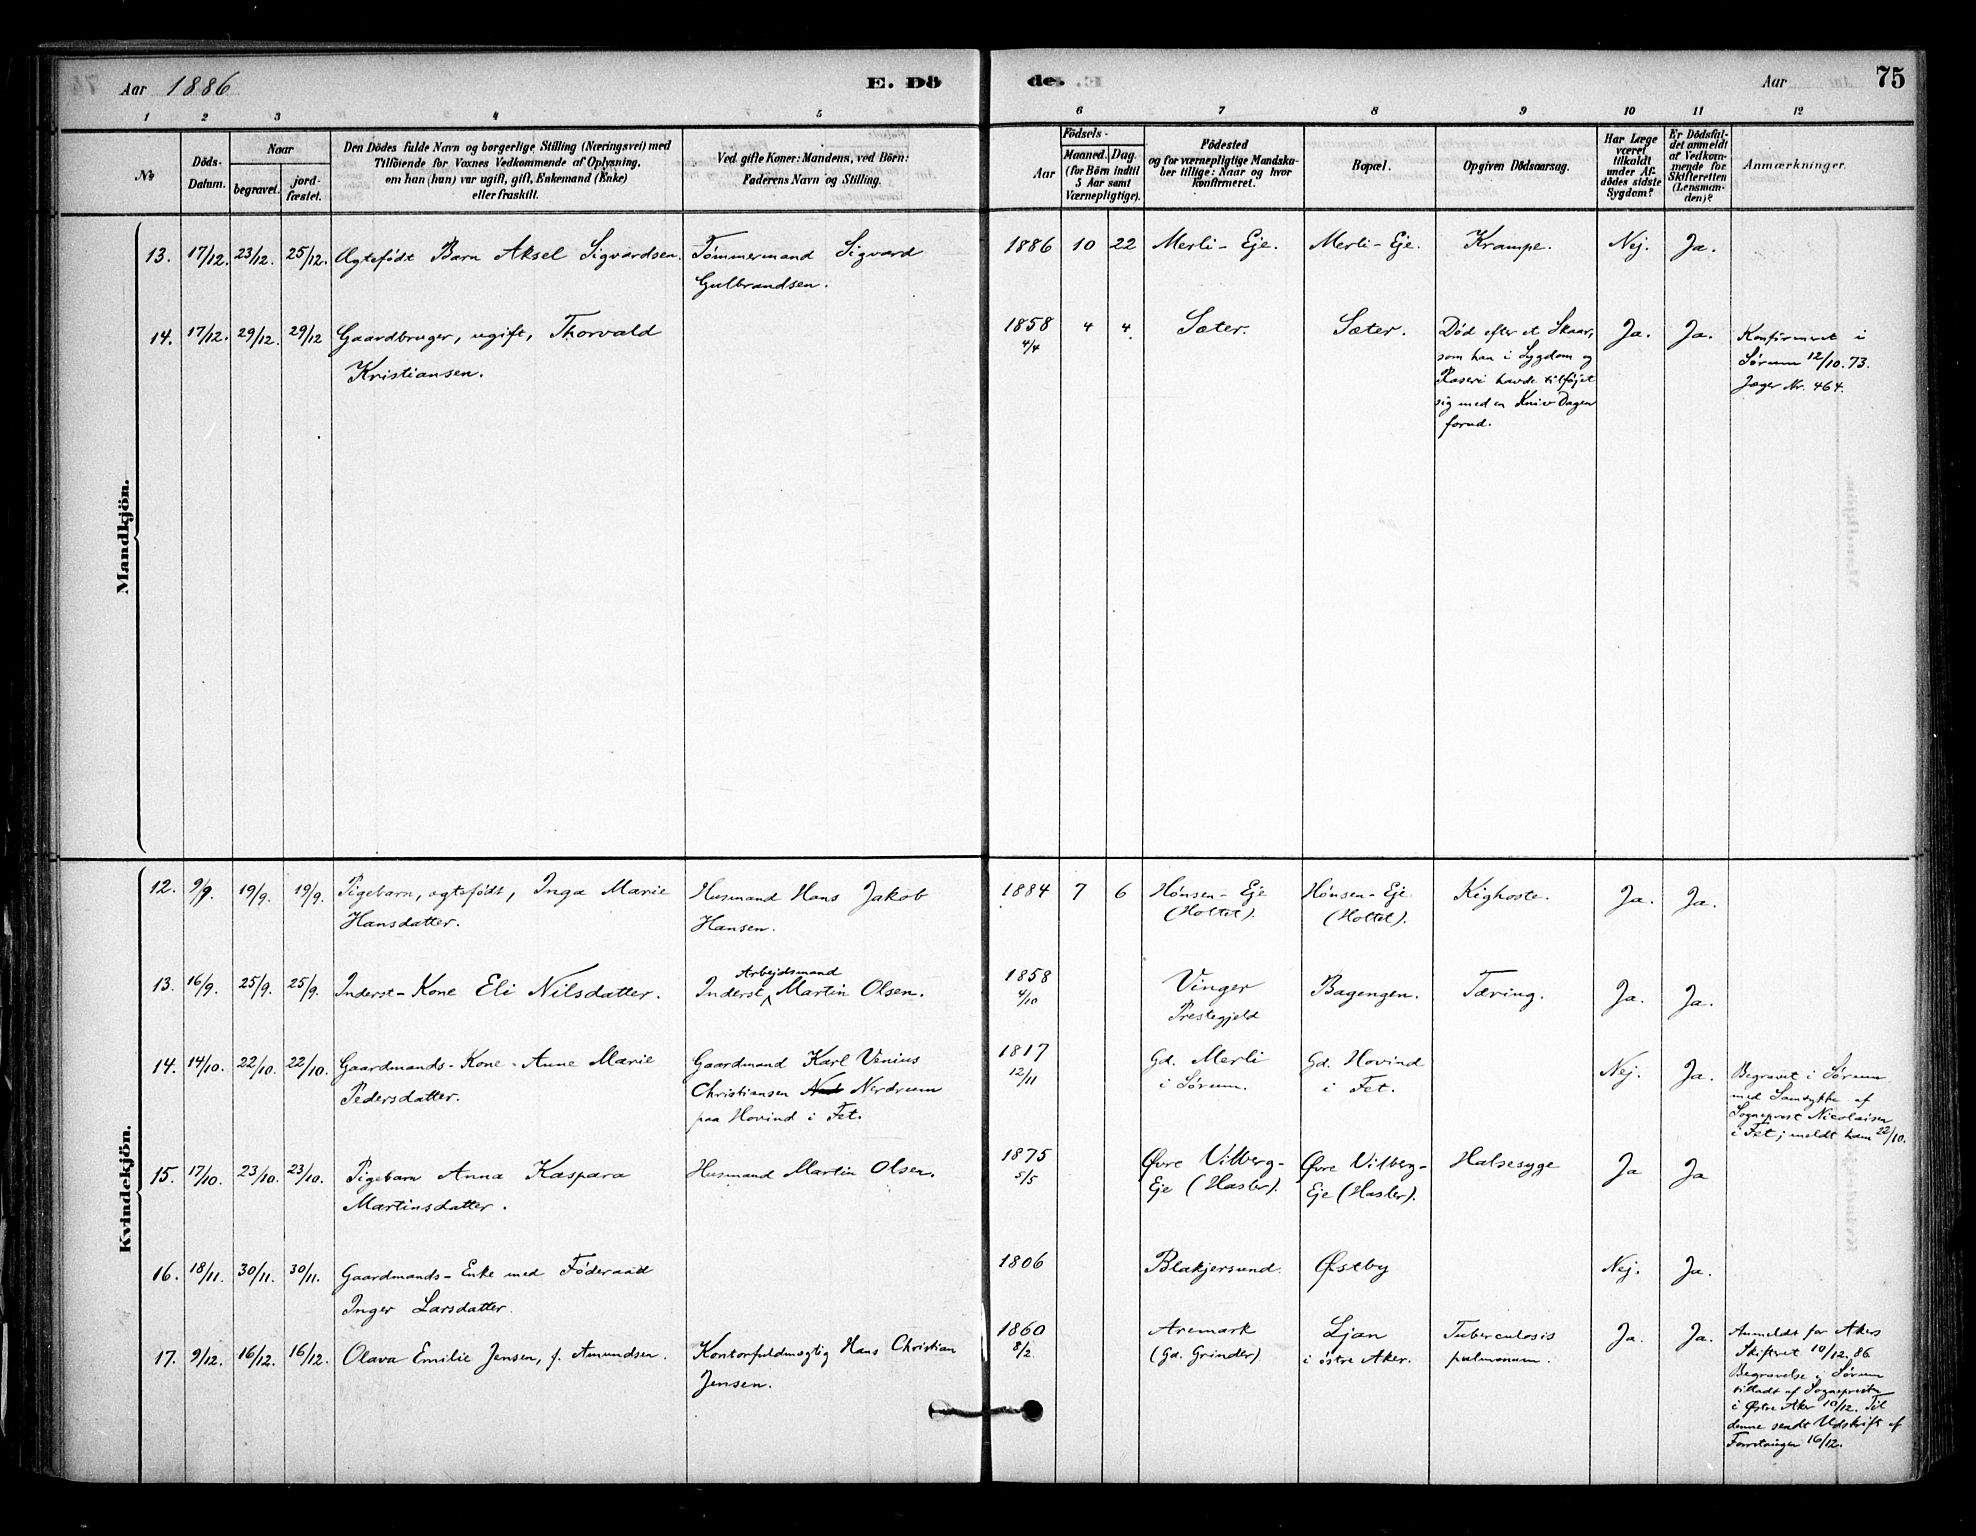 Aar 1886 E. Dö de. Aar 75
1 2 3 4 5 6 7 8 9 10 11 12
No
Döds-Datum.
Naar
begravet.
jordfæstet.
Den Dödes fulde Navn og borgerlige Stilling (Næringsvei) med
Tilföiende for Voxnes Vedkommende af Oplysning,
om han (hun) var ugift, gift, Enkemand (Enke)
eller fraskilt.
Ved gifte Koner: Mandens, ved Börn:
Faderens Navn og Stilling.
Aar
Födsels-
Maaned. Dag.
(for Börn indtil
5 Aar samt
Værnepligtige).
Födested
og for værnepligtige Mandskaber
tillige: Naar og hvor
konfirmeret.
Bopæl.
Opgiven Dödsaarsag.
Har Læge
været
tilkaldt
under Afdödes
sidste
Sygdom?
Er Dödsfaldet
anmeldt
af Vedkommende
for
Skifteretten
(Lensmanden)?
Anmærkninger.
Mandkjön.
13. 17/12. 23/12. 25/12. Ægtefødt Barn Aksel Sigvardsen. Tømmermand Sigvard
Gulbrandsen.
1886 10 22 Merli-Eje. Merli-Eje. Krampe. Nej. Ja.
14. 17/12. 29/12. 29/12 Gaardbruger, ugift, Thorvald
Kristiansen.
1858 4 4. Sæter. Sæter.
4/4
Død efter et Skaar,
som han i Sygdom og
Raseri havde tilføjet
sig med en Kniv Dagen
forud.
Ja. Ja.
Konfirmeret i
Sørum 12/10.73.
Jæger Nr. 464.
Kvindekjön.
12. 9/9. 19/9. 19/9. Pigebarn, ægtefødt, Inga Marie
Hansdatter.
Husmand Hans Jakob
Hansen.
1884 7 6 Hønsen-Eje
(Holtet).
Hønsen-Eje.
(Holtet).
Kighoste. Ja. Ja.
13. 16/9. 25/9. 25/9. Inderst-Kone Eli Nilsdatter.
Arbejdsmand
Inderst Martin Olsen.
1858
4/10
Vinger
Prestegjeld
Bagengen. Tæring. Ja. Ja.
14. 14/10. 22/10. 22/10. Gaardmands-Kone Anne Marie
Pedersdatter.
Gaardmand Karl Venius
Christiansen Nerdrum
paa Hovind i Fet.
1817
12/11
Gd. Merli
i Sørum.
Gd. Hovind
i Fet.
Nej. Ja.
Begravet i Sørum
med Samtykke af
Sogneprest Nicolaisen
i Fet; meldt ham 22/10.
15. 17/10. 23/10. 23/10. Pigebarn Anna Kaspara
Martinsdatter.
Husmand Martin Olsen.
1875
5/5
Øvre Vilberg-
Eje (Hasler).
Øvre Vilberg-
Eje (Hasler).
Halsesyge Ja Ja
16. 18/11. 30/11. 30/11. Gaardmands-Enke med Föderaad
Inger Larsdatter.
1806 Blakjersund. Østby Nej. Ja.
17. 9/12. 16/12. 16/12. Olava Emilie Jensen, f. Amundsen. Kontorfuldmægtig Hans Christian
Jensen.
1860
8/2.
Aremark
(Gd. Grinder).
Ljan
i østre Aker.
Tuberculosis
pulmonum.
Ja. Ja.
Anmeldt for Akers
Skifteret 10/12.86
Begravelse i Sørum
tilladt af Sognepresten
i Østre Aker 10/12. Til
denne sendt Udskrift af
Forretningen 16/12.